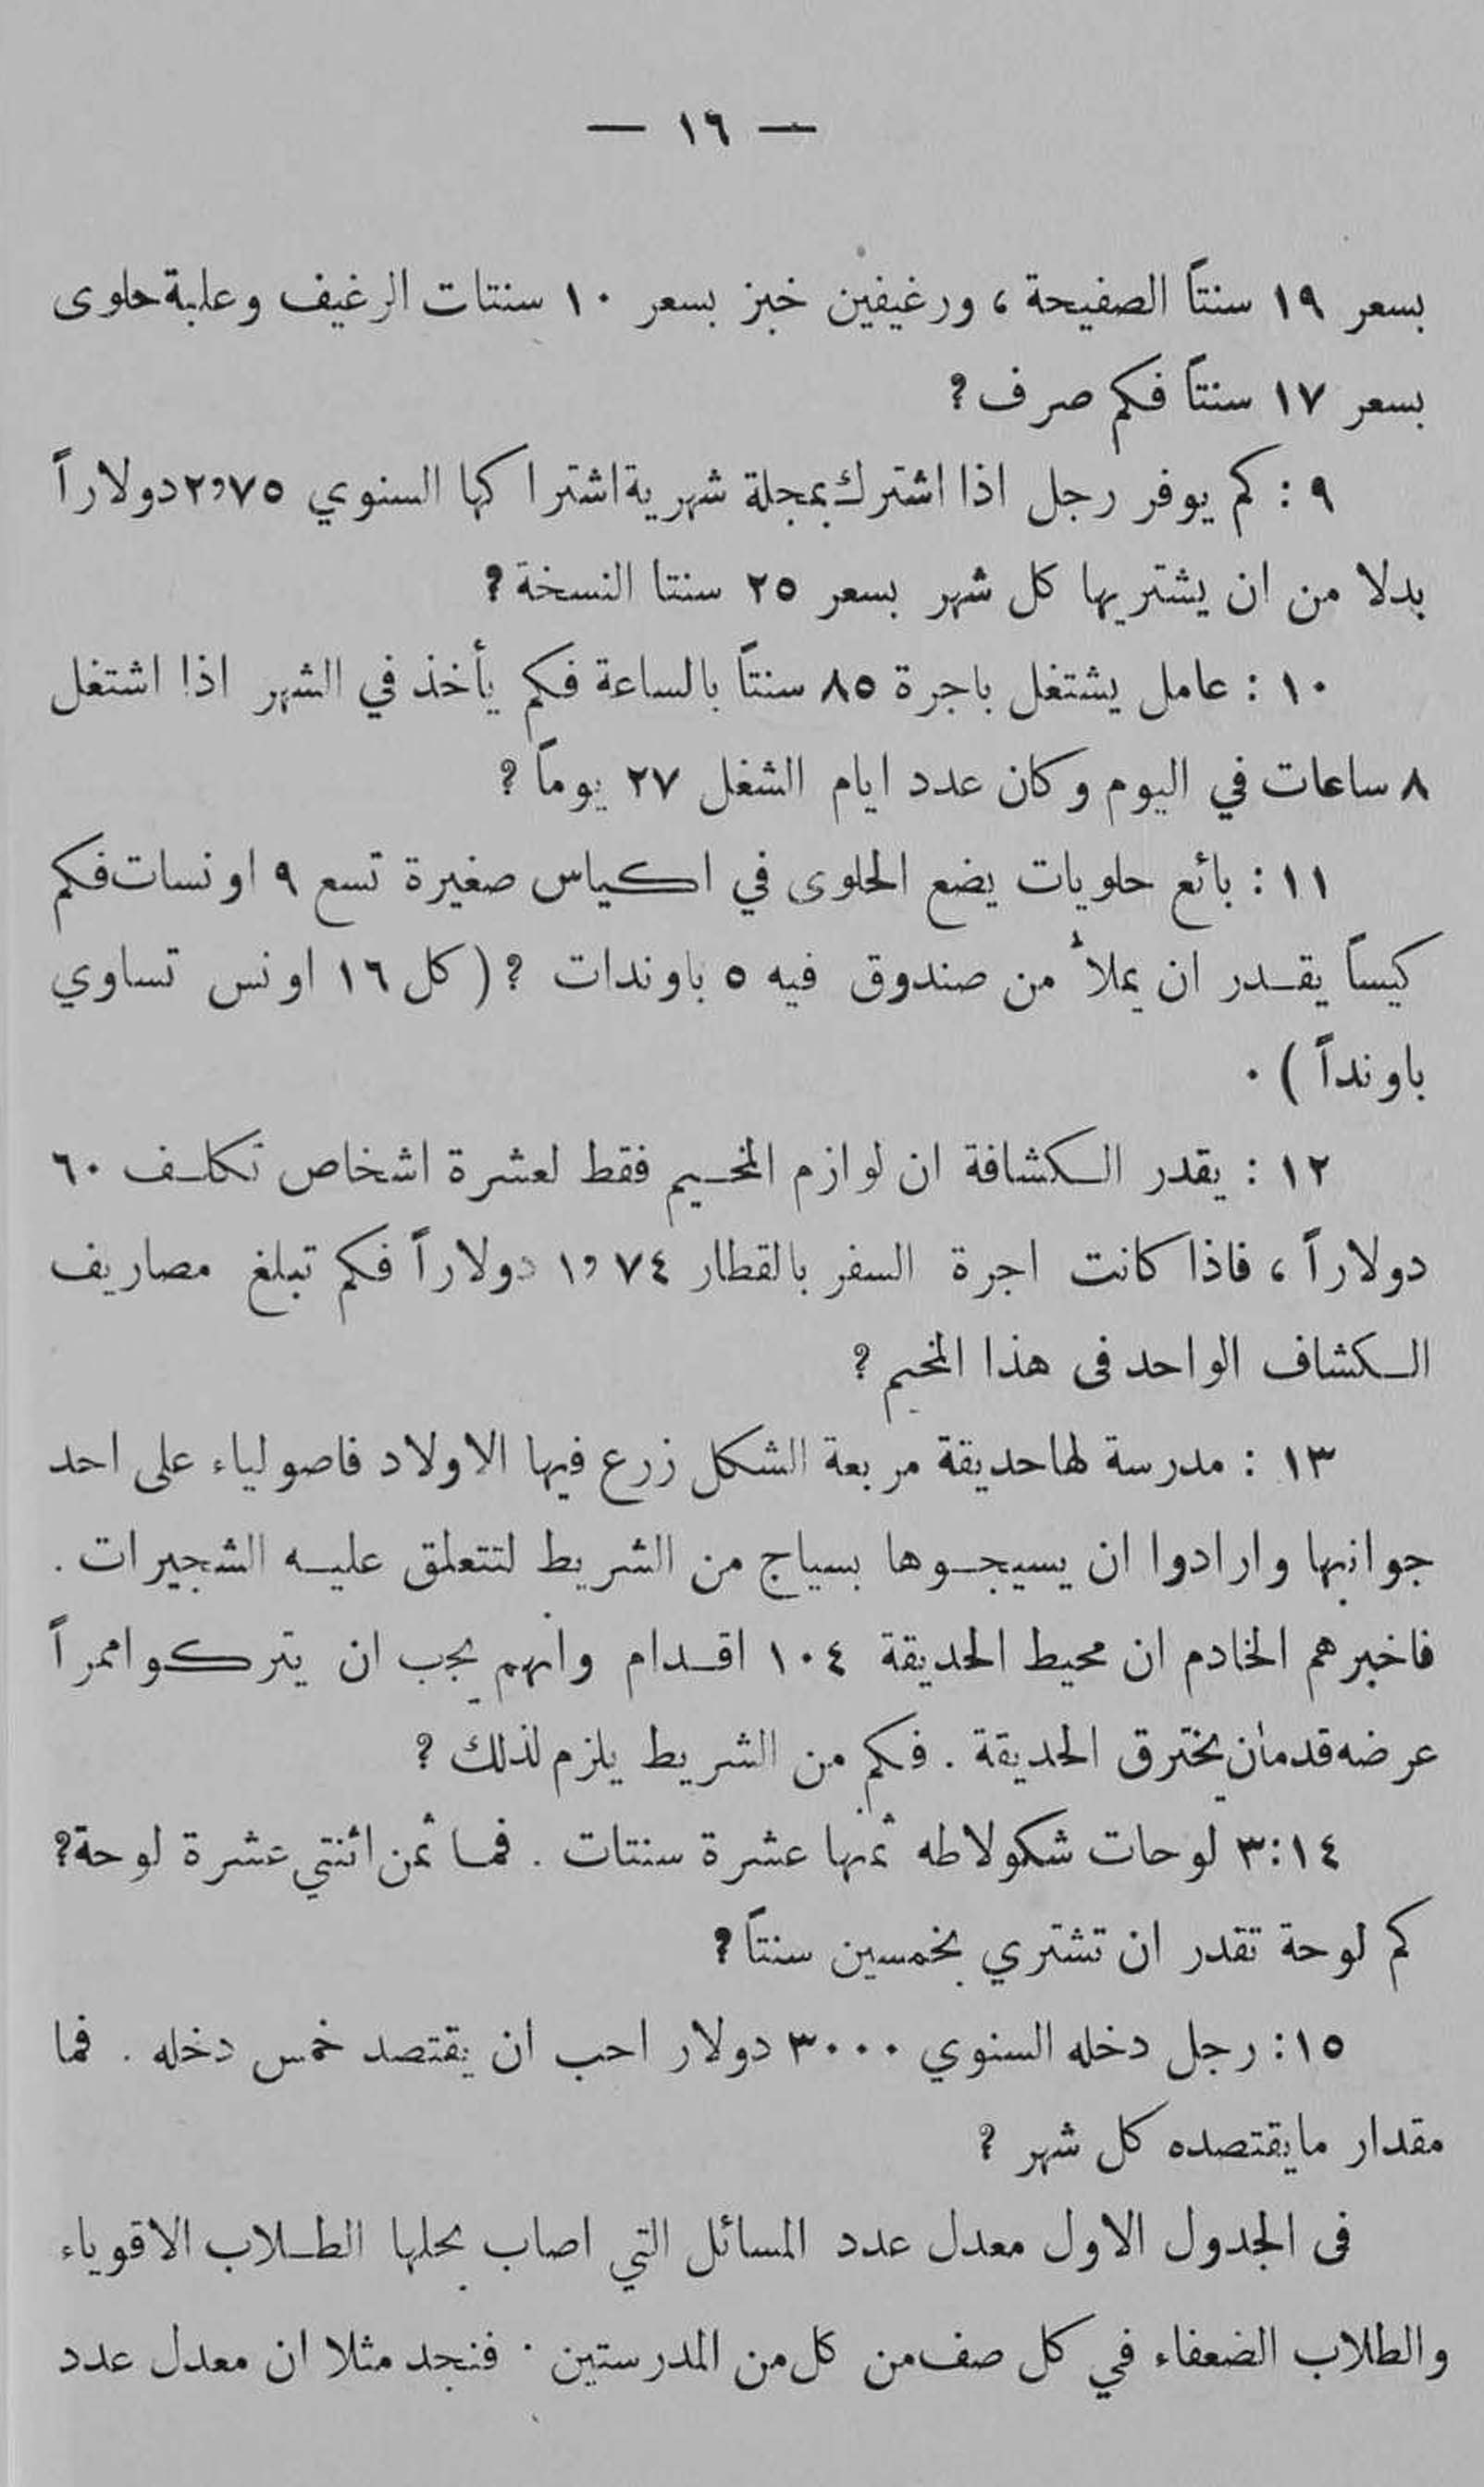 — ١٦ —
بسعر ١٩ سنتاً الصفيحة ، ورغيفين خبز بسعر ١٠ سنتات الرغيف وعلبة حلوى
بسعر ١٧ سنتاً فكم صرف ؟
٩ : كم يوفر رجل اذا اشترك بمجلة شهرية اشتراكها السنوي ٢,٧٥ دولاراً
بدلا من ان يشتريها كل شهر بسعر ٢٥ سنتا النسخة ؟
١٠ : عامل يشتغل باجرة ٨٥ سنتاً بالساعة فكم يأخذ في الشهر اذا اشتغل
٨ ساعات في اليوم وكان عدد ايام الشغل ٢٧ يوماً ؟
١١ : بائع حلويات يضع الحلوى في اكياس صغيرة تسع ٩ اونسات فكم
كيساً يقدر ان يملأ من صندوق فيه ٥ باوندات ؟ ( كل ١٦ اونس تساوي
باونداً ) .
١٢ : يقدر الكشافة ان لوازم المخيم فقط لعشرة اشخاص تكلف ٦٠
دولاراً ، فاذا كانت اجرة السفر بالقطار ١,٧٤ دولاراً فكم تبلغ مصاريف
الكشاف الواحد فى هذا المخيم ؟
١٣ : مدرسة لها حديقة مربعة الشكل زرع فيها الاولاد فاصولياء على احد
جوانبها وارادوا ان يسيجوها بسياج من الشريط لتتعلق عليه الشجيرات .
فاخبرهم الخادم ان محيط الحديقة ١٠٤ اقدام وانهم يجب ان يتركوا ممراً
عرضه قدمان يخترق الحديقة . فكم من الشريط يلزم لذلك ؟
١٤ : ٣ لوحات شكولاطه ثمنها عشرة سنتات . فما ثمن اثنتي عشرة لوحة ؟
كم لوحة تقدر ان تشتري بخمسين سنتاً ؟
١٥ : رجل دخله السنوي ٣٠٠٠ دولار احب ان يقتصد خمس دخله . فما
مقدار ما يقتصده كل شهر ؟
فى الجدول الاول معدل عدد المسائل التي اصاب بحلها الطلاب الاقوياء
والطلاب الضعفاء في كل صف من كل من المدرستين . فنجد مثلا ان معدل عدد